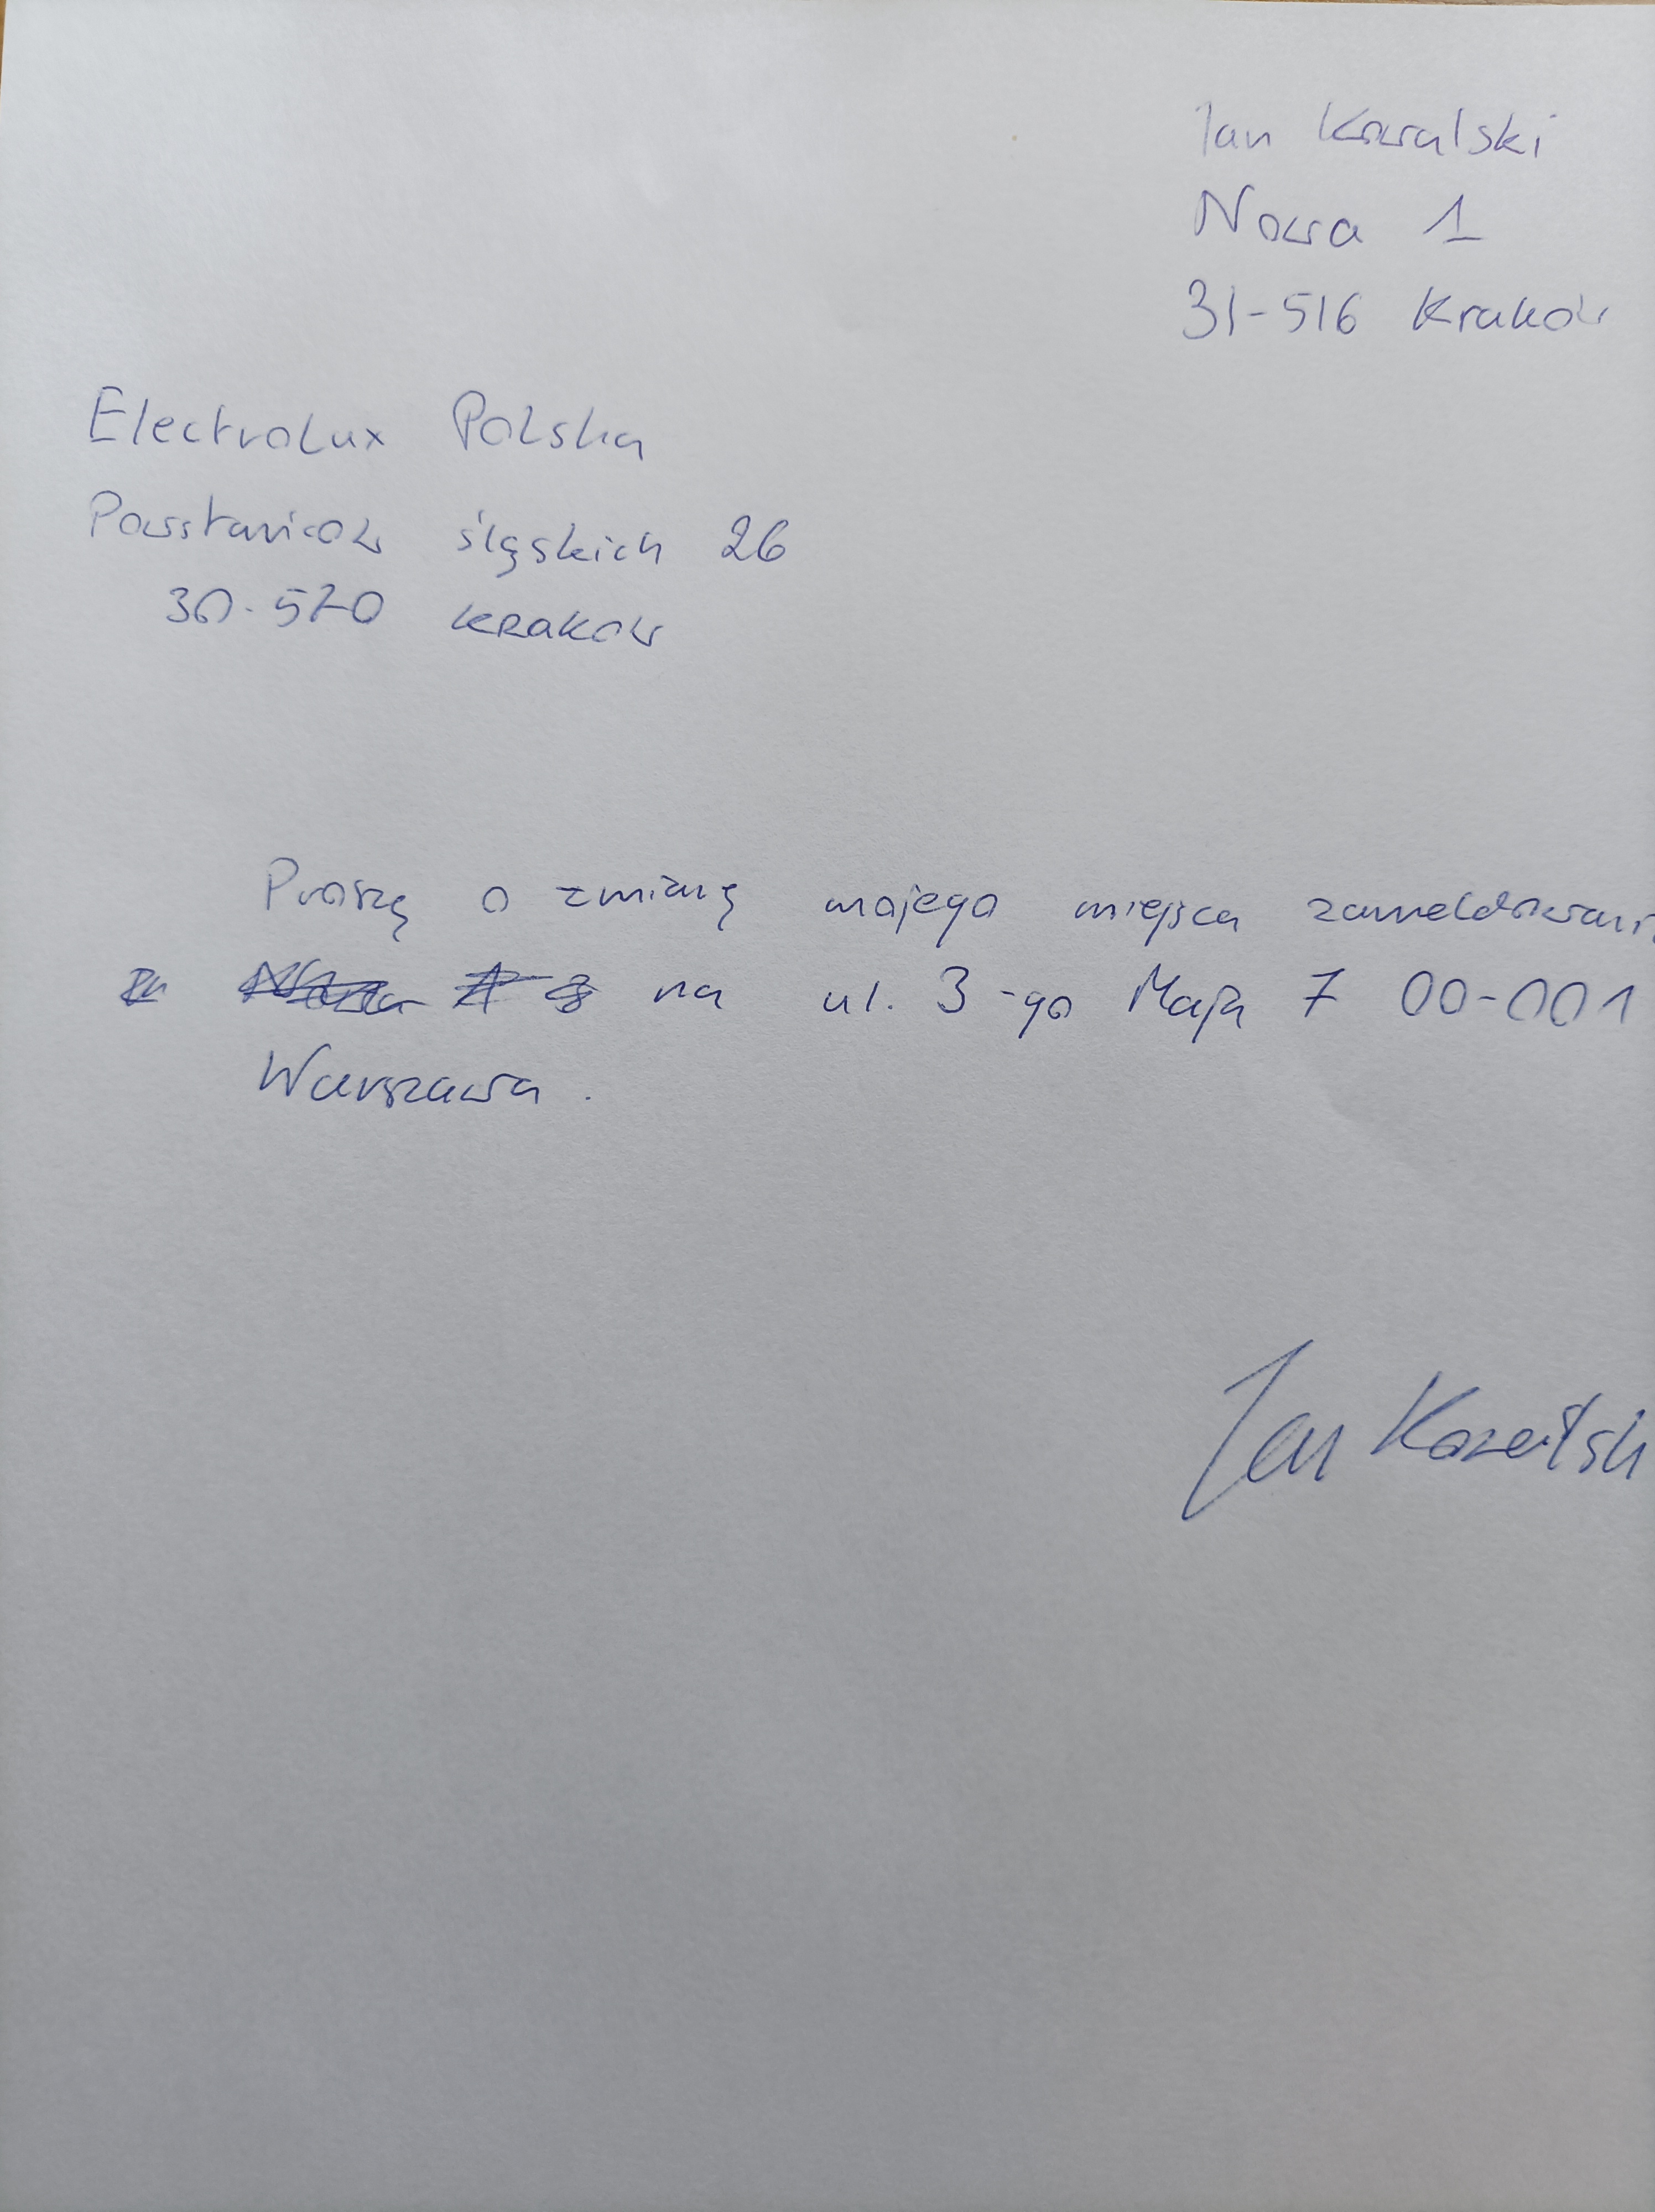 Jan Kowalski
Nowa 1
31-516 Kraków
Electrolux Polska
Powstańców śląskich 26
30-570 Kraków
Proszę o zmianę mojego miejsca zameldowani
na ul. 3-go Maja 7 00-001
Warszawa.
Jan Kowalski